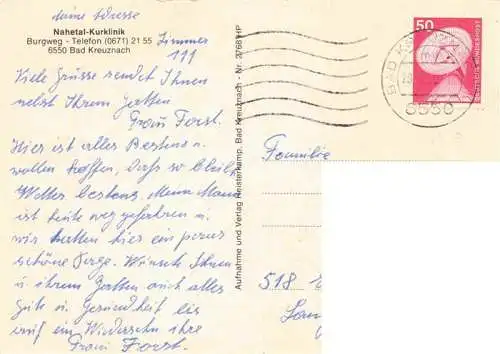 meine Adresse
Nahetal-Kurklinik
Burgweg - Telefon (0671) 21 55
6550 Bad Kreuznach
Zimmer
199
Viele Grüsse sendet Ihnen
nebst Ihrem Gatten
Frau Forst.
Hier ist alles Bestens u.
wollen hoffen, daß so bleibt
Wetter bestens. Mein Mann
ist heute weg gefahren u.
wir hatten hier ein paar
schöne Tage. Wünsch Ihnen
u. ihrem Gatten auch alles
Gute u. Gesundheit bis
auf ein Wiedersehn ihre
Frau Forst.
Aufnahme und Verlag Reisterkamp, Bad Kreuznach - Nr. 2768 HP
50
DEUTSCHE BUNDESPOST
BAD
6550
Familie
518